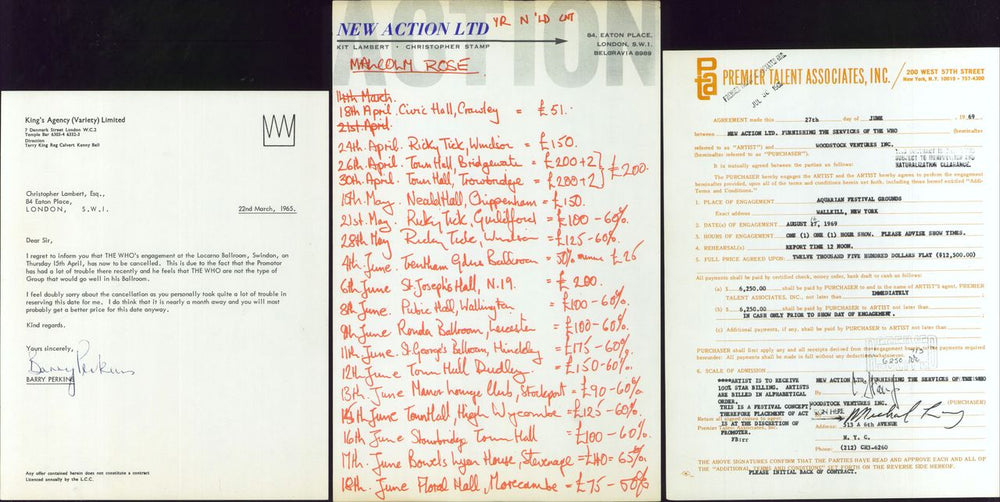 King's Agency (Variety) Limited
7 Denmark Street London W.C.2
Temple Bar 6303-4 6352-3
Direction
Terry King Reg Calvert Kenny Bell
Christopher Lambert, Esq.,
84 Eaton Place,
LONDON, S.W.I.
22nd March, 1965.
Dear Sir,
I regret to inform you that THE WHO's engagement at the Locarno Ballroom, Swindon, on
Thursday 15th April, has now to be cancelled. This is due to the fact that the Promotor
has had a lot of trouble there recently and he feels that THE WHO are not the type of
Group that would go well in his Ballroom.
I feel doubly sorry about the cancellation as you personally took quite a lot of trouble in
reserving this date for me. I do think that it is nearly a month away and you will most
probably get a better price for this date anyway.
Kind regards.
Yours sincerely,
Barry Perkins
BARRY PERKINS
Any offer contained herein does not constitute a contract
Licensed annually by the L.C.C.
ACTION
NEW ACTION LTD
KIT LAMBERT • CHRISTOPHER STAMP
84, EATON PLACE,
LONDON, S.W.I.
BELGRAVIA 8989
MALCOLM ROSE
14th March.
18th April. Civic Hall, Crawley = £51.
21st April.
24th April. Ricky Tick, Windsor = £150.
26th April. Town Hall, Bridgewater = £200+2
30th April. Town Hall, Trowbridge = £200+2 } £200.
15th May. Neald Hall, Chippenham = £150.
21st May. Ricky Tick, Guildford = £100-60%.
28th May Ricky Tick, Windsor = £125-60%.
4th June. Trentham Gdns Ballroom = 50% minus £26
6th June St Josephs Hall, N.19. = £200.
8th June. Public Hall, Wallington = £100-60%.
9th June Ronda Ballroom, Leicester = £100-60%.
11th June. St. George's Ballroom, Hinckley = £175-60%.
12th June Town Hall Dudley. = £150-60%.
13th June Manor house Club, Stockport = £90-60%
15th June Town Hall High Wycombe = £125-60%.
16th June Stourbridge Town Hall = £100-60%.
17th June Bowes Lyon House, Stevenage = £140=65%.
18th June Floral Hall, Morecambe = £75-50%
PTA
PREMIER TALENT ASSOCIATES, INC.
200 WEST 57TH STREET
New York, N.Y. 10019 • 757-4300
AGREEMENT made this 27th day of JUNE 1969
between NEW ACTION LTD. FURNISHING THE SERVICES OF THE WHO (hereinafter
referred to as "ARTIST") and WOODSTOCK VENTURES INC.
(hereinafter referred to as "PURCHASER").
SUBJECT TO IMMIGRATION AND
NATURALIZATION CLEARANCE.
It is mutually agreed between the parties as follows:
The PURCHASER hereby engages the ARTIST and the ARTIST hereby agrees to perform the engagement
hereinafter provided, upon all of the terms and conditions herein set forth, including those hereof entitled "Additional
Terms and Conditions."
1. PLACE OF ENGAGEMENT AQUARIAN FESTIVAL GROUNDS
Exact address WALLKILL, NEW YORK
2. DATE(S) OF ENGAGEMENT AUGUST 1969
3. HOURS OF ENGAGEMENT ONE (1) ONE (1) HOUR SHOW. PLEASE ADVISE SHOW TIMES.
4. REHEARSAL(S) REPORT TIME 12 NOON.
5. FULL PRICE AGREED UPON: TWELVE THOUSAND FIVE HUNDRED DOLLARS FLAT ($12,500.00)
All payments shall be paid by certified check, money order, bank draft or cash as follows:
(a) $ 6,250.00 shall be paid by PURCHASER to and in the name of ARTIST'S agent, PREMIER
TALENT ASSOCIATES, INC., not later than IMMEDIATELY
(b) $ 6,250.00 shall be paid by PURCHASER to ARTIST not later than
IN CASH ONLY PRIOR TO SHOW DAY OF ENGAGEMENT.
(c) Additional payments, if any, shall be paid by PURCHASER to ARTIST not later than
PURCHASER shall first apply any and all receipts derived from the engagement to the payments required
hereunder: All payments shall be made in full without any deductions
6. SCALE OF ADMISSION
****ARTIST IS TO RECEIVE
100% STAR BILLING. ARTISTS
ARE BILLED IN ALPHABETICAL
ORDER.
THIS IS A FESTIVAL CONCEPT
THEREFORE PLACEMENT OF ACT
IS AT THE DISCRETION OF
PROMOTER.
FB:rr
NEW ACTION LTD. FURNISHING THE SERVICES OF THE WHO
By
WOODSTOCK VENTURES INC. (PURCHASER)
By
Address: 513 A 6th AVENUE
N. Y. C.
Phone: (212) CH3-6260
THE ABOVE SIGNATURES CONFIRM THAT THE PARTIES HAVE READ AND APPROVE EACH AND ALL OF
THE "ADDITIONAL TERMS AND CONDITIONS" SET FORTH ON THE REVERSE SIDE HEREOF.
PLEASE INITIAL BACK OF CONTRACT.